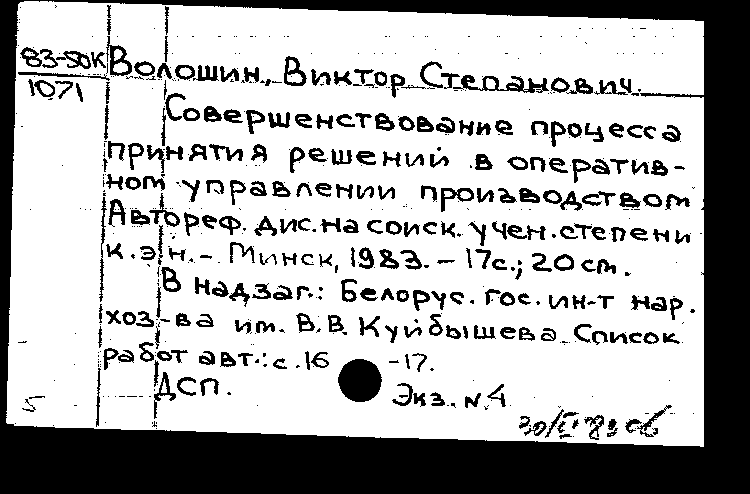 83-50К
1071
Волошин, Виктор Степанович.
Совершенствование процесса
принятия решений в оператив-
ном управлении производством.
Автореф. дис. на соиск. учен. степени
к.э.н. - Минск, 1983. - 17с.; 20 cm.
В надзаг.: Белорус. гос. ин-т нар.
хоз-ва им. В.В. Куйбышева. Список
работ авт.: с. 16 -17.
ДСП.
Экз. N 4
5